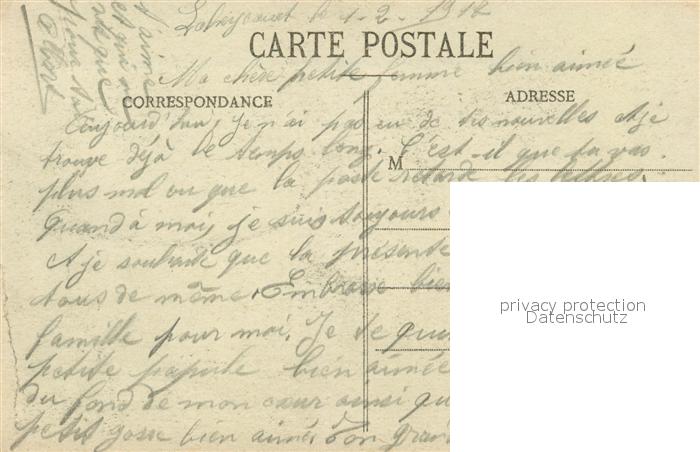 le 1-2-1917
CARTE POSTALE
Ma chère petite femme bien aimée
CORRESPONDANCE
ADRESSE
Aujourd'hui, je n'ai pas eu de tes nouvelles et je
trouve déjà le temps long. C'est-il que tu vas
M
plus mal ou que la poste retarde les lettres.
Quand à moi, je suis toujours
et je souhaite que la présente
tous de même. Embrasse bien
famille pour moi. Je te
petite bien aimée
du fond de mon cœur ainsi
petit gosse bien aimé. Ton
t'aime
et qui
que
pour
Albert
privacy protection
Datenschutz